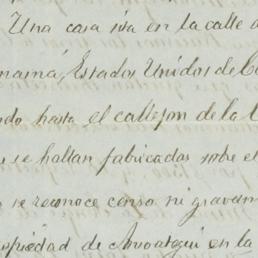 Una casa sita en la calle d
namá, Estados Unidos de Co
do hasta el callejon de la C
se hallan fabricadas sobre el
se reconoce censo ni gravam
opiedad de Amoategui en la